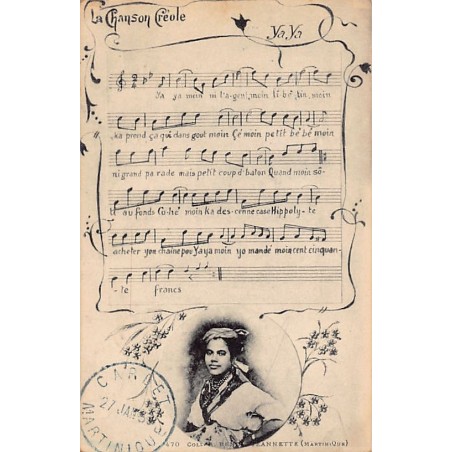 La Chanson Créole
Ya, Ya
Ya ya moin ni l'a-gent, moin li-bé-tin, moin
ka prend ça qui dans gout moin Çé moin petit bé bé moin
ni grand pa rade mais petit coup d'baton Quand moin sò-
ti au fonds Co-hé moin Ka des-cenne case Hippoly-te
acheter yon chaine pou Ya ya moin yo mandé moin cent cinquan-
-te francs
CARBET
27 JA
MARTINIQUE
470 JEANNETTE (MARTINIQUE)